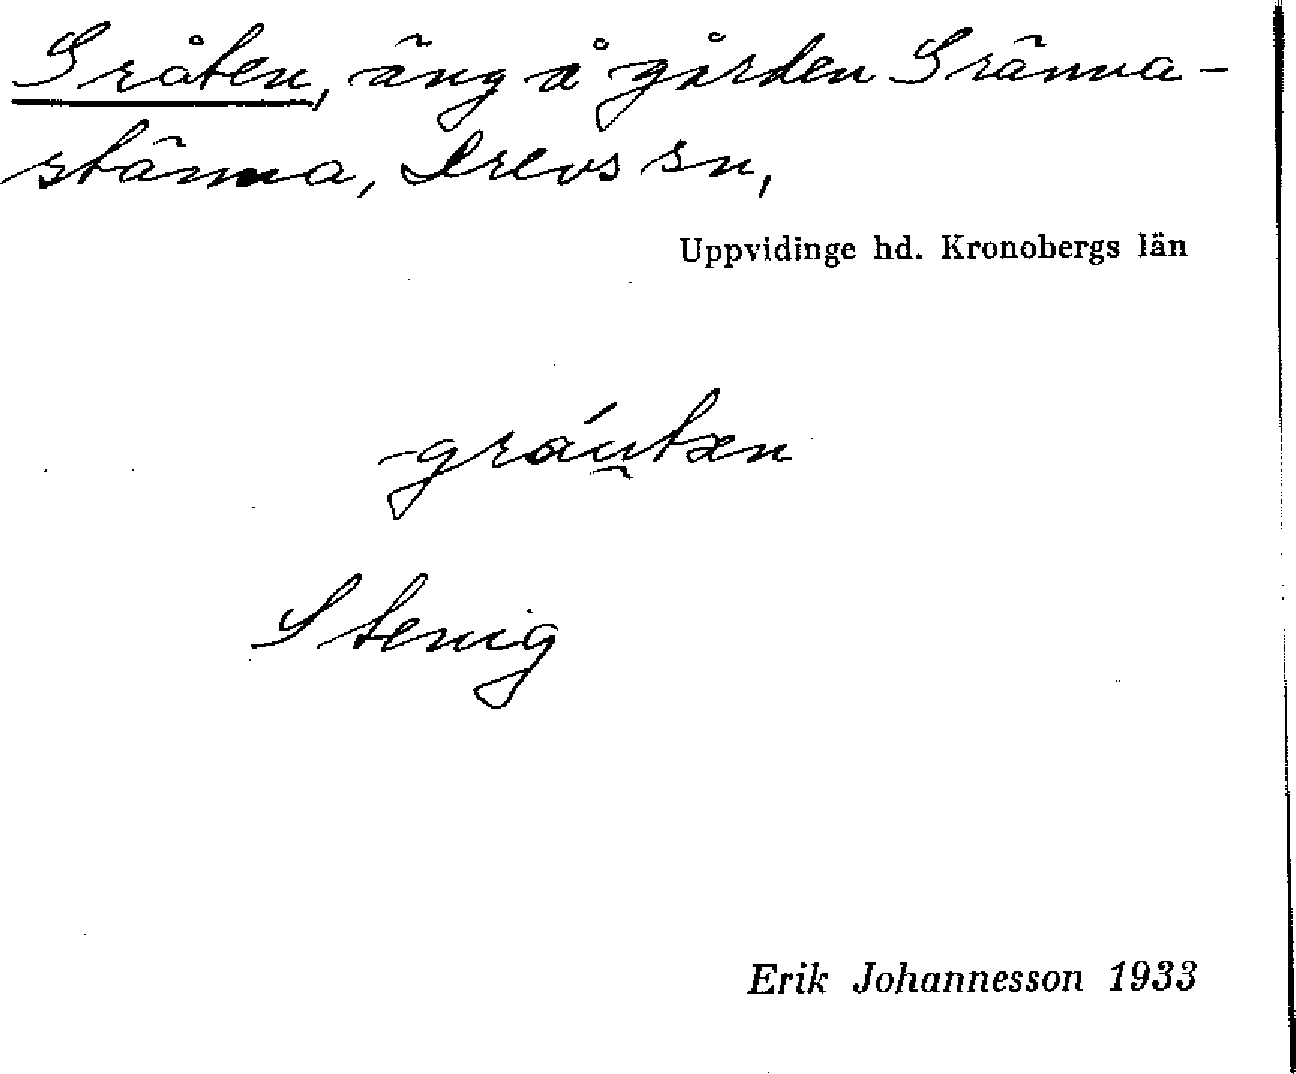 Gråten, äng å gården Gränna-
stänna, Drevs sn,
Uppvidinge hd. Kronobergs län
gráu̯tæn
Stenig
Erik Johannesson 1933